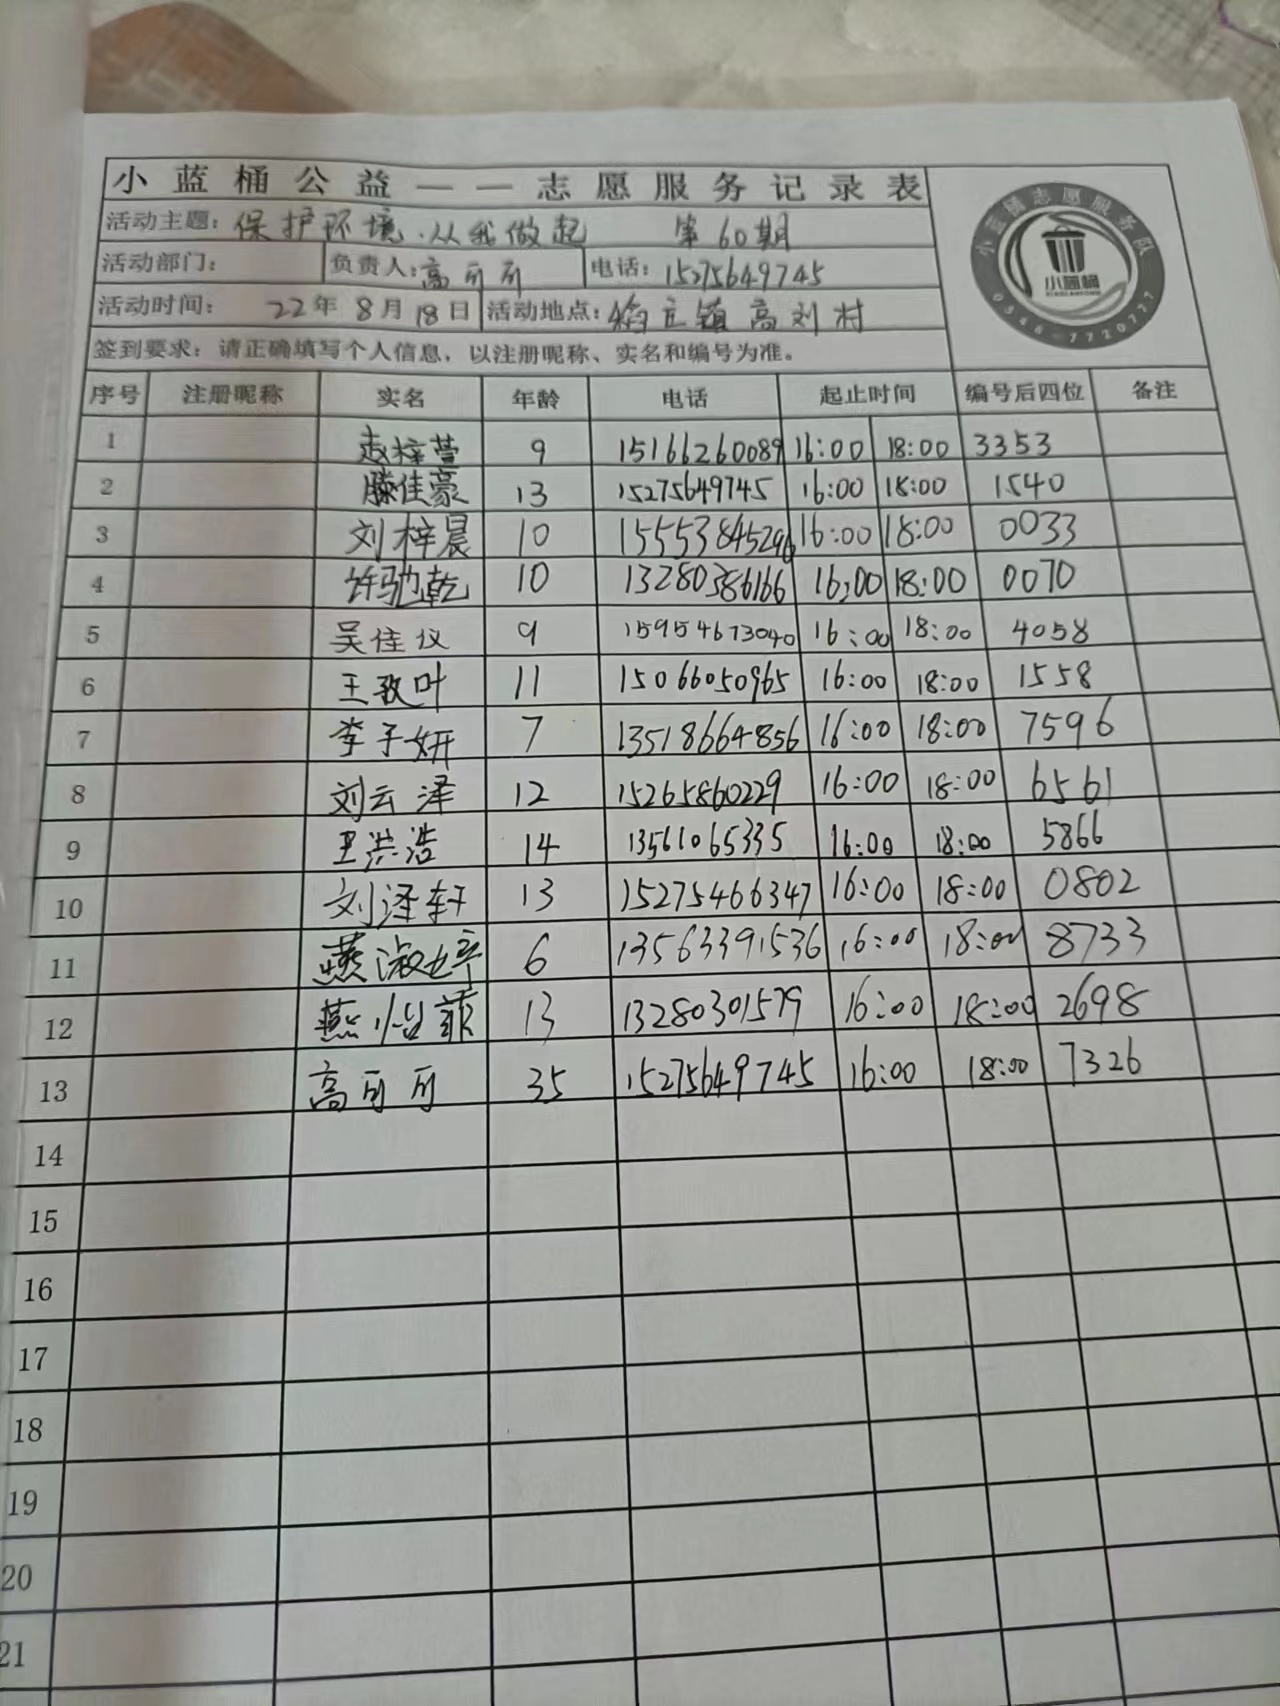 小蓝桶公益——志愿服务记录表
活动主题：保护环境.从我做起 第60期
活动部门： 负责人：高可可 电话：15275649745
活动时间： 22年8月18日 活动地点：稻庄镇高刘村
签到要求：请正确填写个人信息，以注册昵称、实名和编号为准。
小蓝桶志愿服务队
小蓝桶
0546-7720777
序号 注册昵称 实名 年龄 电话 起止时间 编号后四位 备注
1 赵梓萱 9 15166260089 16:00 18:00 3353
2 滕佳豪 13 15275649745 16:00 18:00 1540
3 刘梓晨 10 15553845296 16:00 18:00 0033
4 许驰乾 10 13280386166 16:00 18:00 0070
5 吴佳仪 9 15954673040 16:00 18:00 4058
6 王致叶 11 15066050965 16:00 18:00 1558
7 李子妍 7 13518664856 16:00 18:00 7596
8 刘云泽 12 15265860229 16:00 18:00 6561
9 王洪浩 14 13561065335 16:00 18:00 5866
10 刘泽轩 13 15275466347 16:00 18:00 0802
11 燕淑婷 6 13563391536 16:00 18:00 8733
12 燕怡菲 13 13280301579 16:00 18:00 2698
13 高可可 35 15275649745 16:00 18:00 7326
14
15
16
17
18
19
20
21